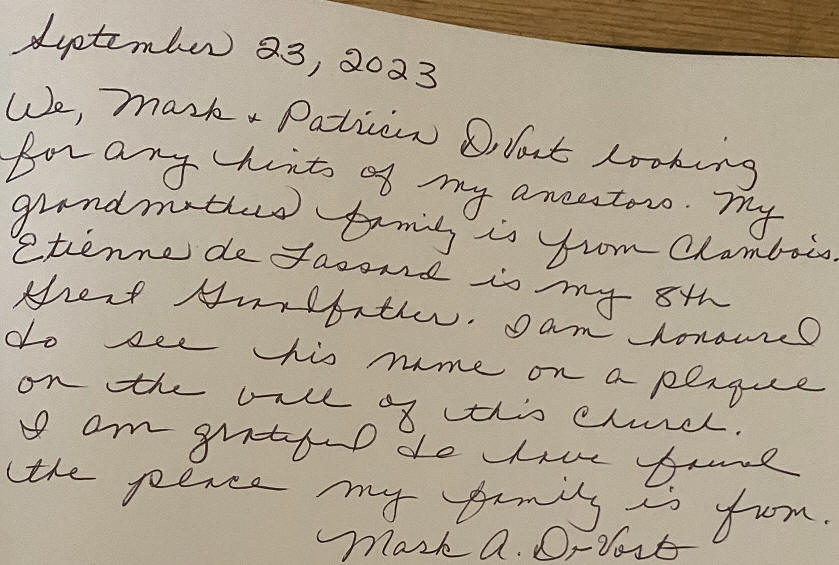 September 23, 2023
We, Mark + Patricia DeVost looking
for any hints of my ancestors. My
grandmothers family is from Chambois.
Etienne de Lassard is my 8th
Great Grandfather. I am honoured
to see his name on a plaque
on the wall of this Church.
I am grateful to have found
the place my family is from.
Mark A. DeVost